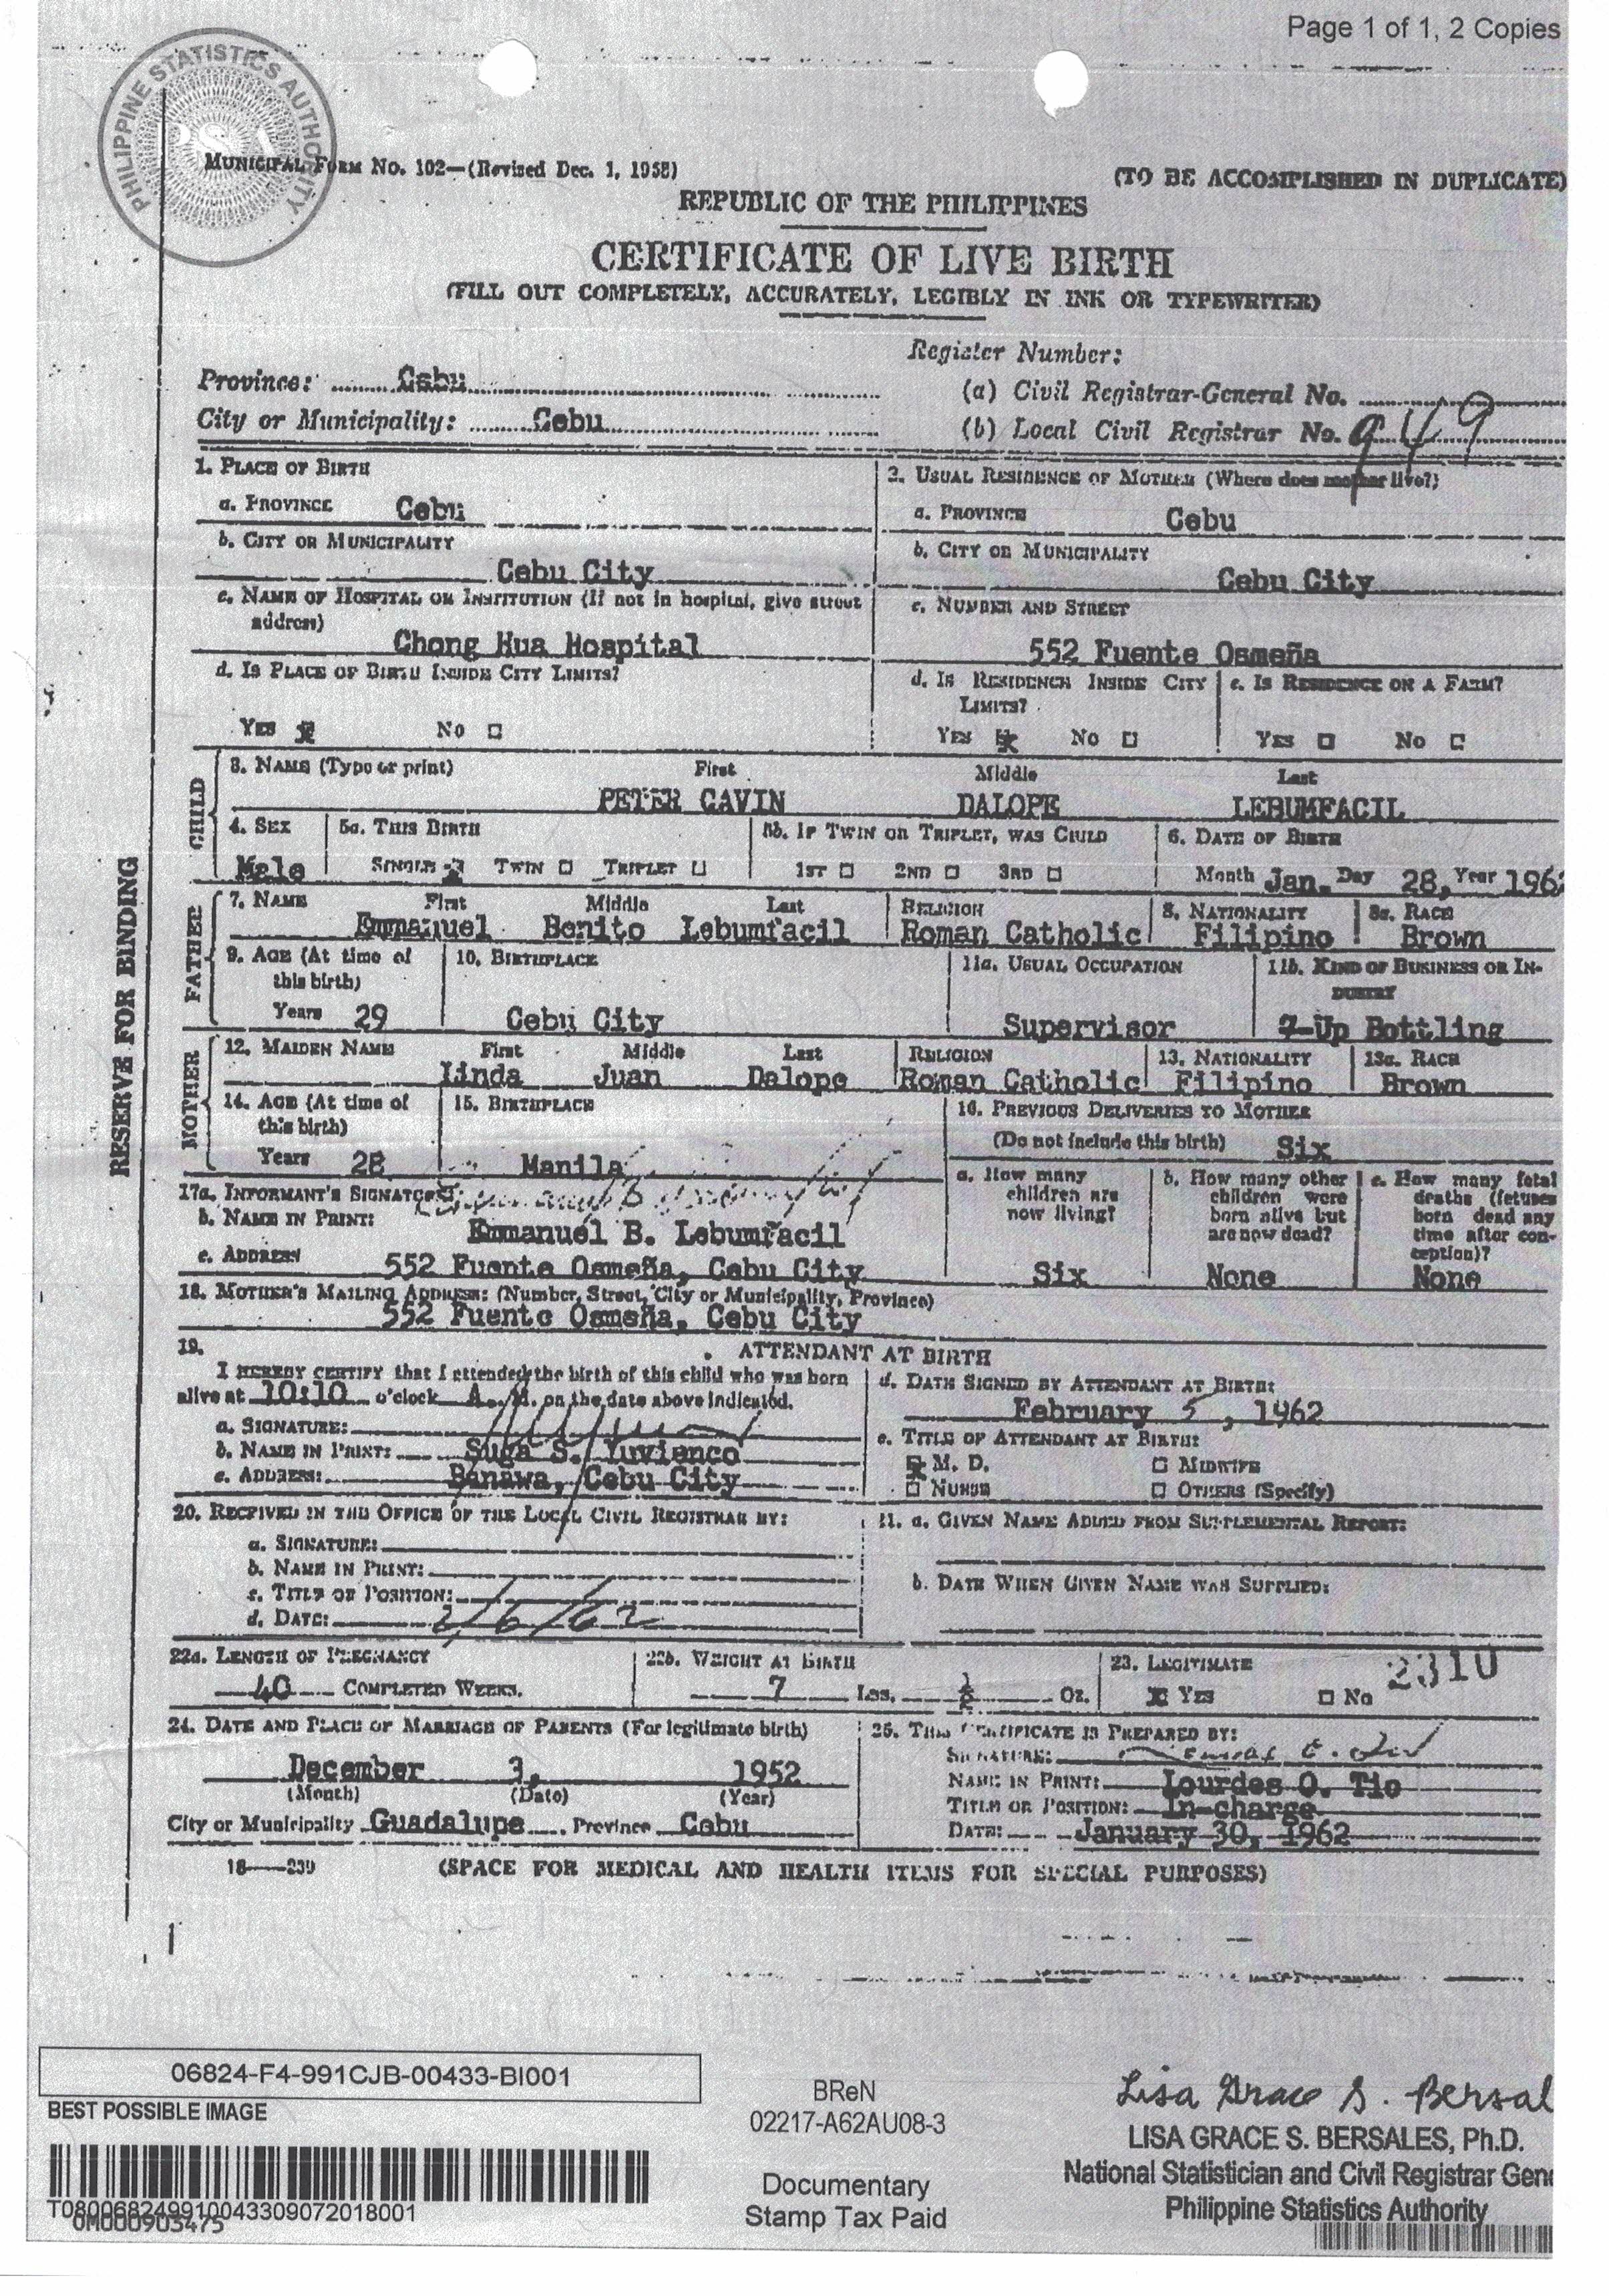 Page 1 of 1, 2 Copies
PHILIPPINE STATISTICS AUTHORITY
PSA
MUNICIPAL FORM No. 102—(Revised Dec. 1, 1958)
(TO BE ACCOMPLISHED IN DUPLICATE)
REPUBLIC OF THE PHILIPPINES
CERTIFICATE OF LIVE BIRTH
(FILL OUT COMPLETELY, ACCURATELY, LEGIBLY IN INK OR TYPEWRITER)
Register Number:
Province: Cebu (a) Civil Registrar-General No.
City or Municipality: Cebu (b) Local Civil Registrar No. 949
1. PLACE OF BIRTH 2. USUAL RESIDENCE OF MOTHER (Where does mother live?)
a. PROVINCE Cebu a. PROVINCE Cebu
b. CITY OR MUNICIPALITY b. CITY OR MUNICIPALITY
Cebu City Cebu City
c. NAME OF HOSPITAL OR INSTITUTION (If not in hospital, give street address) c. NUMBER AND STREET
Chong Hua Hospital 552 Fuente Osmeña
d. IS PLACE OF BIRTH INSIDE CITY LIMITS? d. IS RESIDENCE INSIDE CITY LIMITS? e. IS RESIDENCE ON A FARM?
YES NO YES NO YES NO
CHILD
3. NAME (Type or print) First Middle Last
PETER GAVIN DALOPE LEBUMFACIL
4. SEX 5a. THIS BIRTH 5b. IF TWIN OR TRIPLET, WAS CHILD 6. DATE OF BIRTH
Male SINGLE TWIN TRIPLET 1ST 2ND 3RD Month Jan. Day 28, Year 196
FATHER
7. NAME First Middle Last RELIGION 8. NATIONALITY 8a. RACE
Emmanuel Benito Lebumfacil Roman Catholic Filipino Brown
9. AGE (At time of this birth) 10. BIRTHPLACE 11a. USUAL OCCUPATION 11b. KIND OF BUSINESS OR INDUSTRY
Years 29 Cebu City Supervisor 7-Up Bottling
MOTHER
12. MAIDEN NAME First Middle Last RELIGION 13. NATIONALITY 13a. RACE
Linda Juan Dalope Roman Catholic Filipino Brown
14. AGE (At time of this birth) 15. BIRTHPLACE 16. PREVIOUS DELIVERIES TO MOTHER
(Do not include this birth) Six
Years 28 Manila
a. How many children are now living? b. How many other children were born alive but are now dead? c. How many fetal deaths (fetuses born dead any time after conception)?
17a. INFORMANT'S SIGNATURE:
b. NAME IN PRINT: Emmanuel B. Lebumfacil
c. ADDRESS 552 Fuente Osmeña, Cebu City Six None None
18. MOTHER'S MAILING ADDRESS: (Number, Street, City or Municipality, Province)
552 Fuente Osmeña, Cebu City
19. ATTENDANT AT BIRTH
I HEREBY CERTIFY that I attended the birth of this child who was born
alive at 10:10 o'clock A. M. on the date above indicated.
d. DATE SIGNED BY ATTENDANT AT BIRTH:
February 5, 1962
a. SIGNATURE:
b. NAME IN PRINT: Suga S. Yuvienco
c. ADDRESS: Banawa, Cebu City
e. TITLE OF ATTENDANT AT BIRTH:
M. D. MIDWIFE
NURSE OTHERS (Specify)
20. RECEIVED IN THE OFFICE OF THE LOCAL CIVIL REGISTRAR BY: 11. a. GIVEN NAME ADDED FROM SUPPLEMENTAL REPORT:
a. SIGNATURE:
b. NAME IN PRINT:
c. TITLE OR POSITION: b. DATE WHEN GIVEN NAME WAS SUPPLIED:
d. DATE: 2/6/62
22a. LENGTH OF PREGNANCY 22b. WEIGHT AT BIRTH 23. LEGITIMATE 2310
40 COMPLETED WEEKS. 7 LBS. OZ. YES NO
24. DATE AND PLACE OF MARRIAGE OF PARENTS (For legitimate birth) 25. THIS CERTIFICATE IS PREPARED BY:
SIGNATURE:
December 3, 1952 NAME IN PRINT: Lourdes O. Tio
(Month) (Date) (Year) TITLE OR POSITION: In-charge
City or Municipality Guadalupe Province Cebu DATE: January 30, 1962
18—239 (SPACE FOR MEDICAL AND HEALTH ITEMS FOR SPECIAL PURPOSES)
RESERVE FOR BINDING
06824-F4-991CJB-00433-BI001
BEST POSSIBLE IMAGE
T080068249910043309072018001
0M000903475
BReN
02217-A62AU08-3
Documentary
Stamp Tax Paid
Lisa Grace S. Bersal
LISA GRACE S. BERSALES, Ph.D.
National Statistician and Civil Registrar Gen
Philippine Statistics Authority